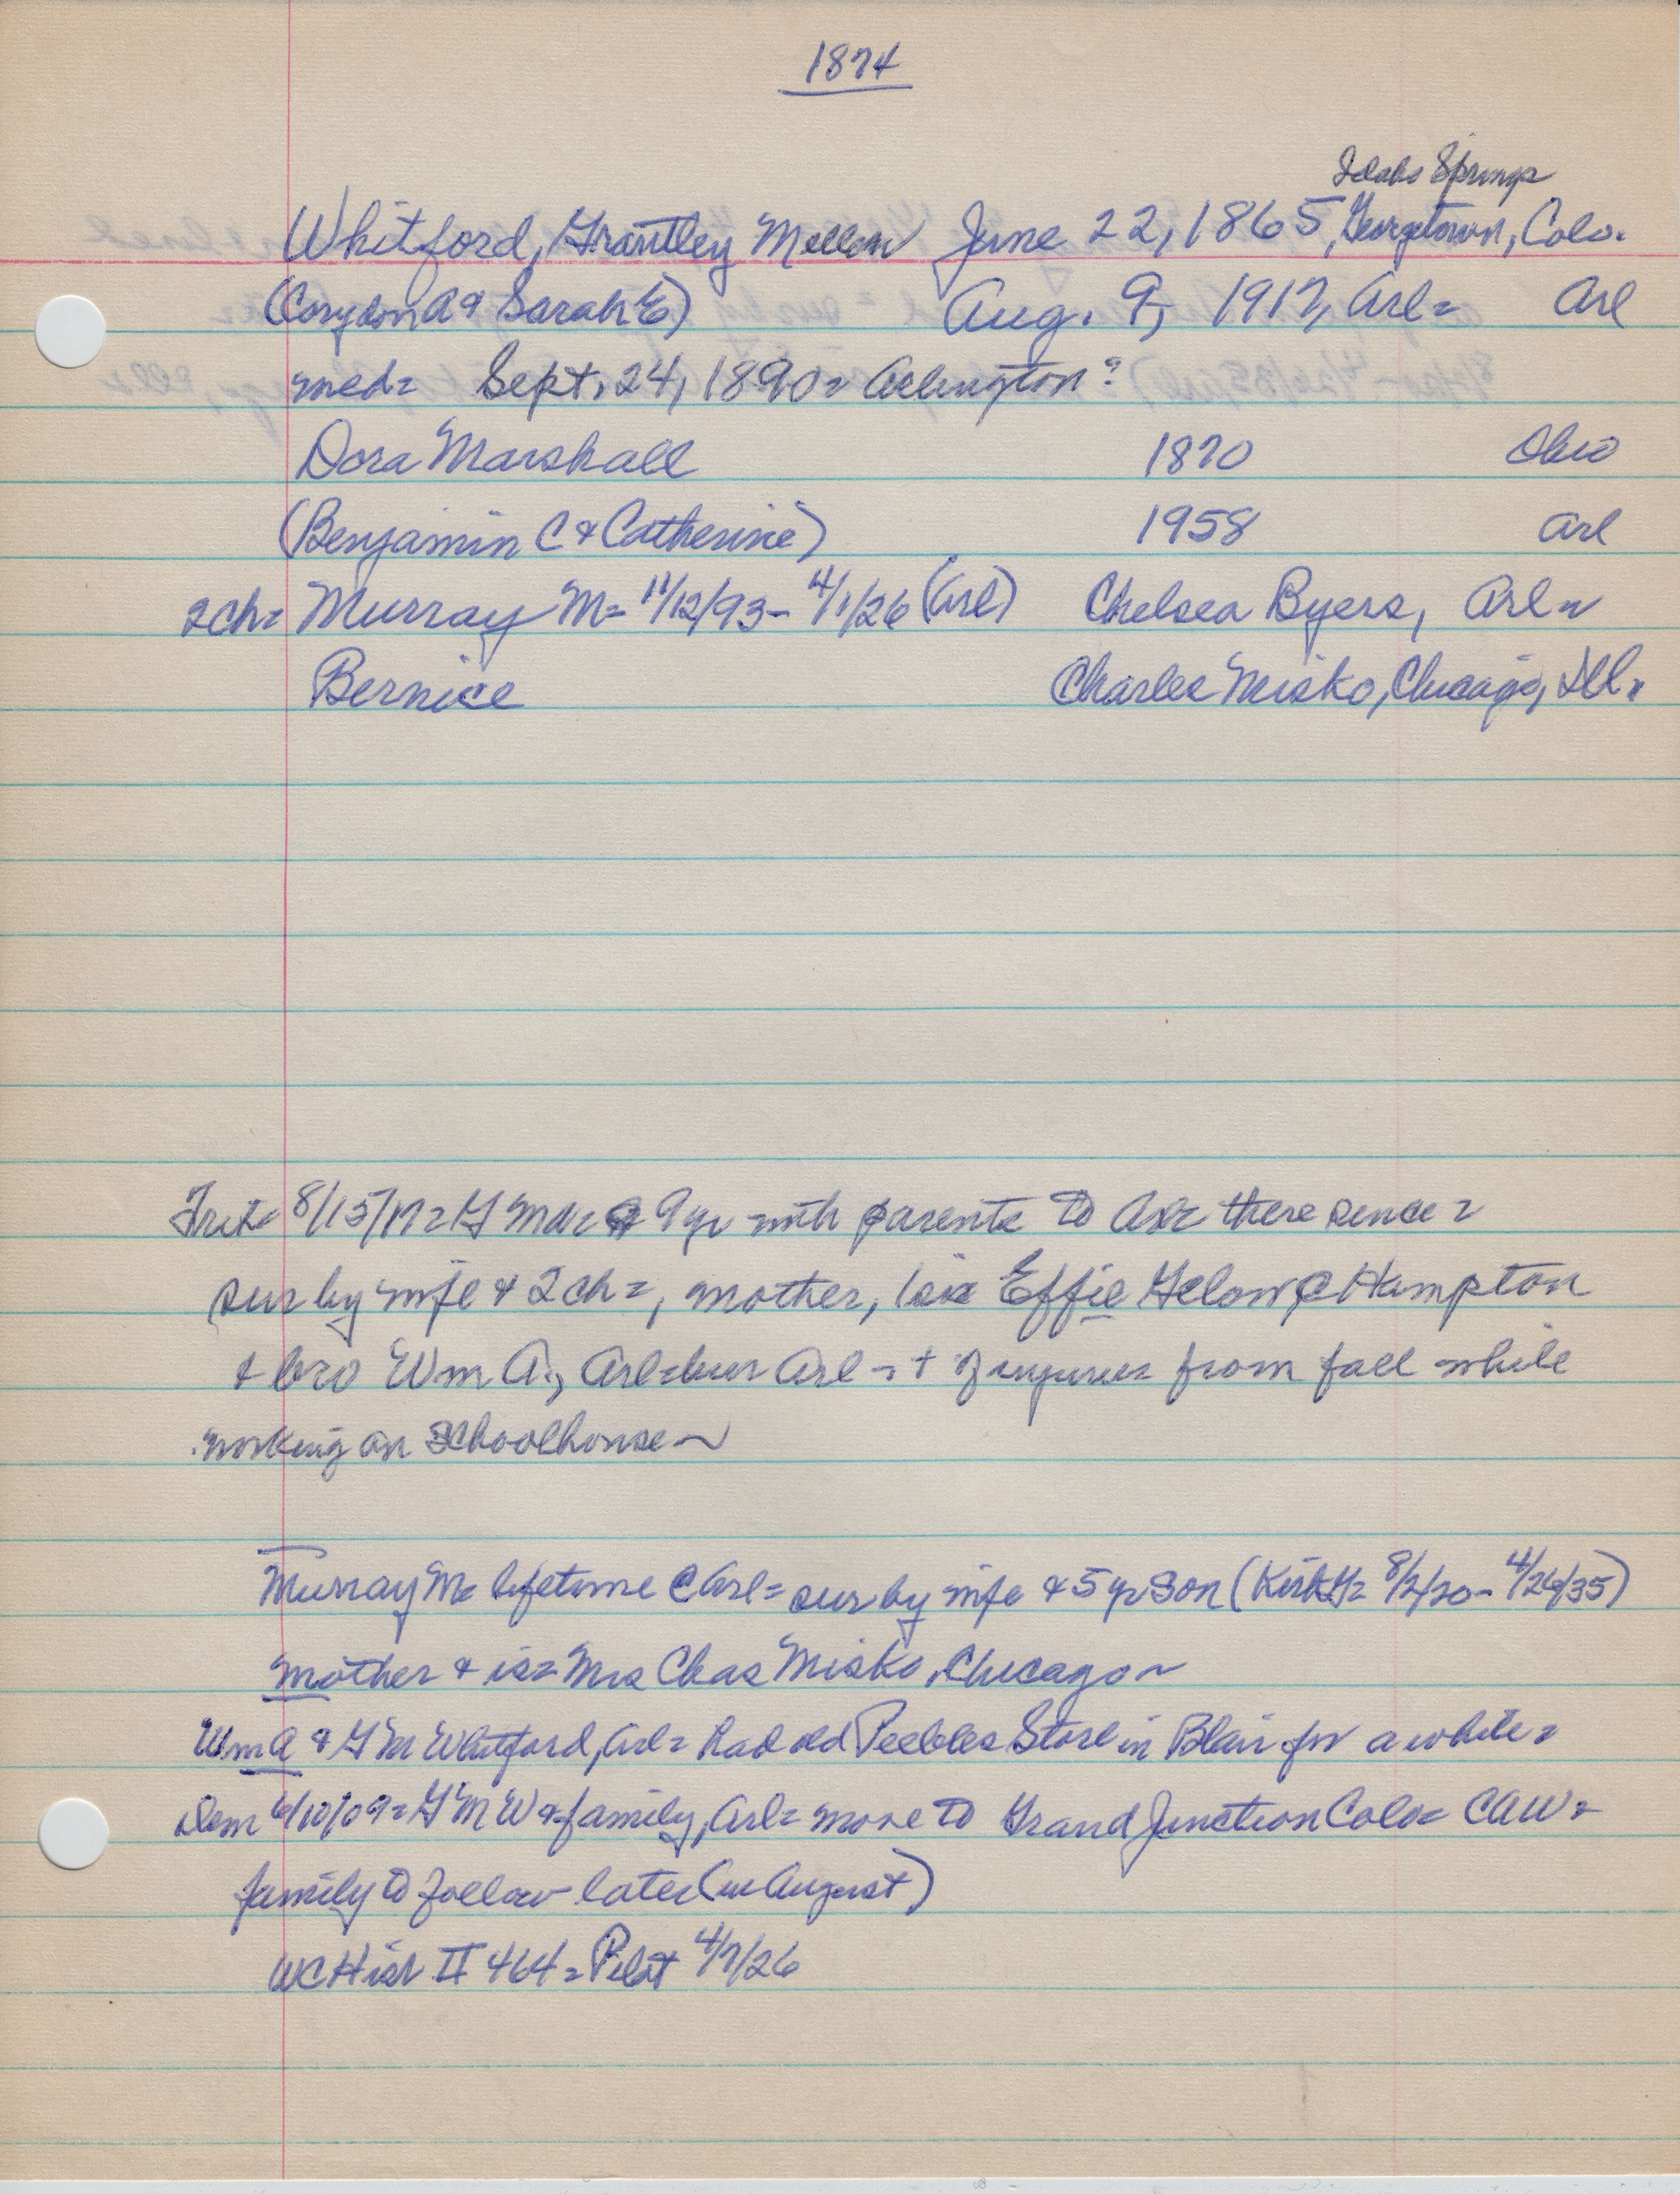 1874
Idaho Springs
Whitford, Grantley Mellen June 22, 1865, Georgetown, Colo.
(Corydon A & Sarah E) Aug. 9, 1917, Arl= Arl
med= Sept. 24, 1890= Arlington?
Dora Marshall 1870 Ohio
(Benjamin C & Catherine) 1958 Arl
2ch= Murray M= 11/12/93- 4/1/26 (Arl) Chelsea Byers, Arl=
Bernice Charles Misko, Chicago, Ill.
8/15/17= G M W= @ 9 yr with parents to Arl= there since=
sur by wife & 2 ch=, mother, 1 sis Effie @ Hampton
& bro Wm A., Arl=bur Arl-= + of injuries from fall while
working on schoolhouse~
Murray M= lifetime @ Arl= sur by wife & 5 yr son (Kirk G= 8/2/20- 4/26/35)
mother & is= Mrs Chas Misko, Chicago~
Wm A & G M Whitford, Arl= had old Peebles Store in Blair for a while=
Dem 6/10/09= G M W & family, Arl= move to Grand Junction Colo= CAW=
family to follow later (in August)
WC Hist II 464= Pilot 4/7/26